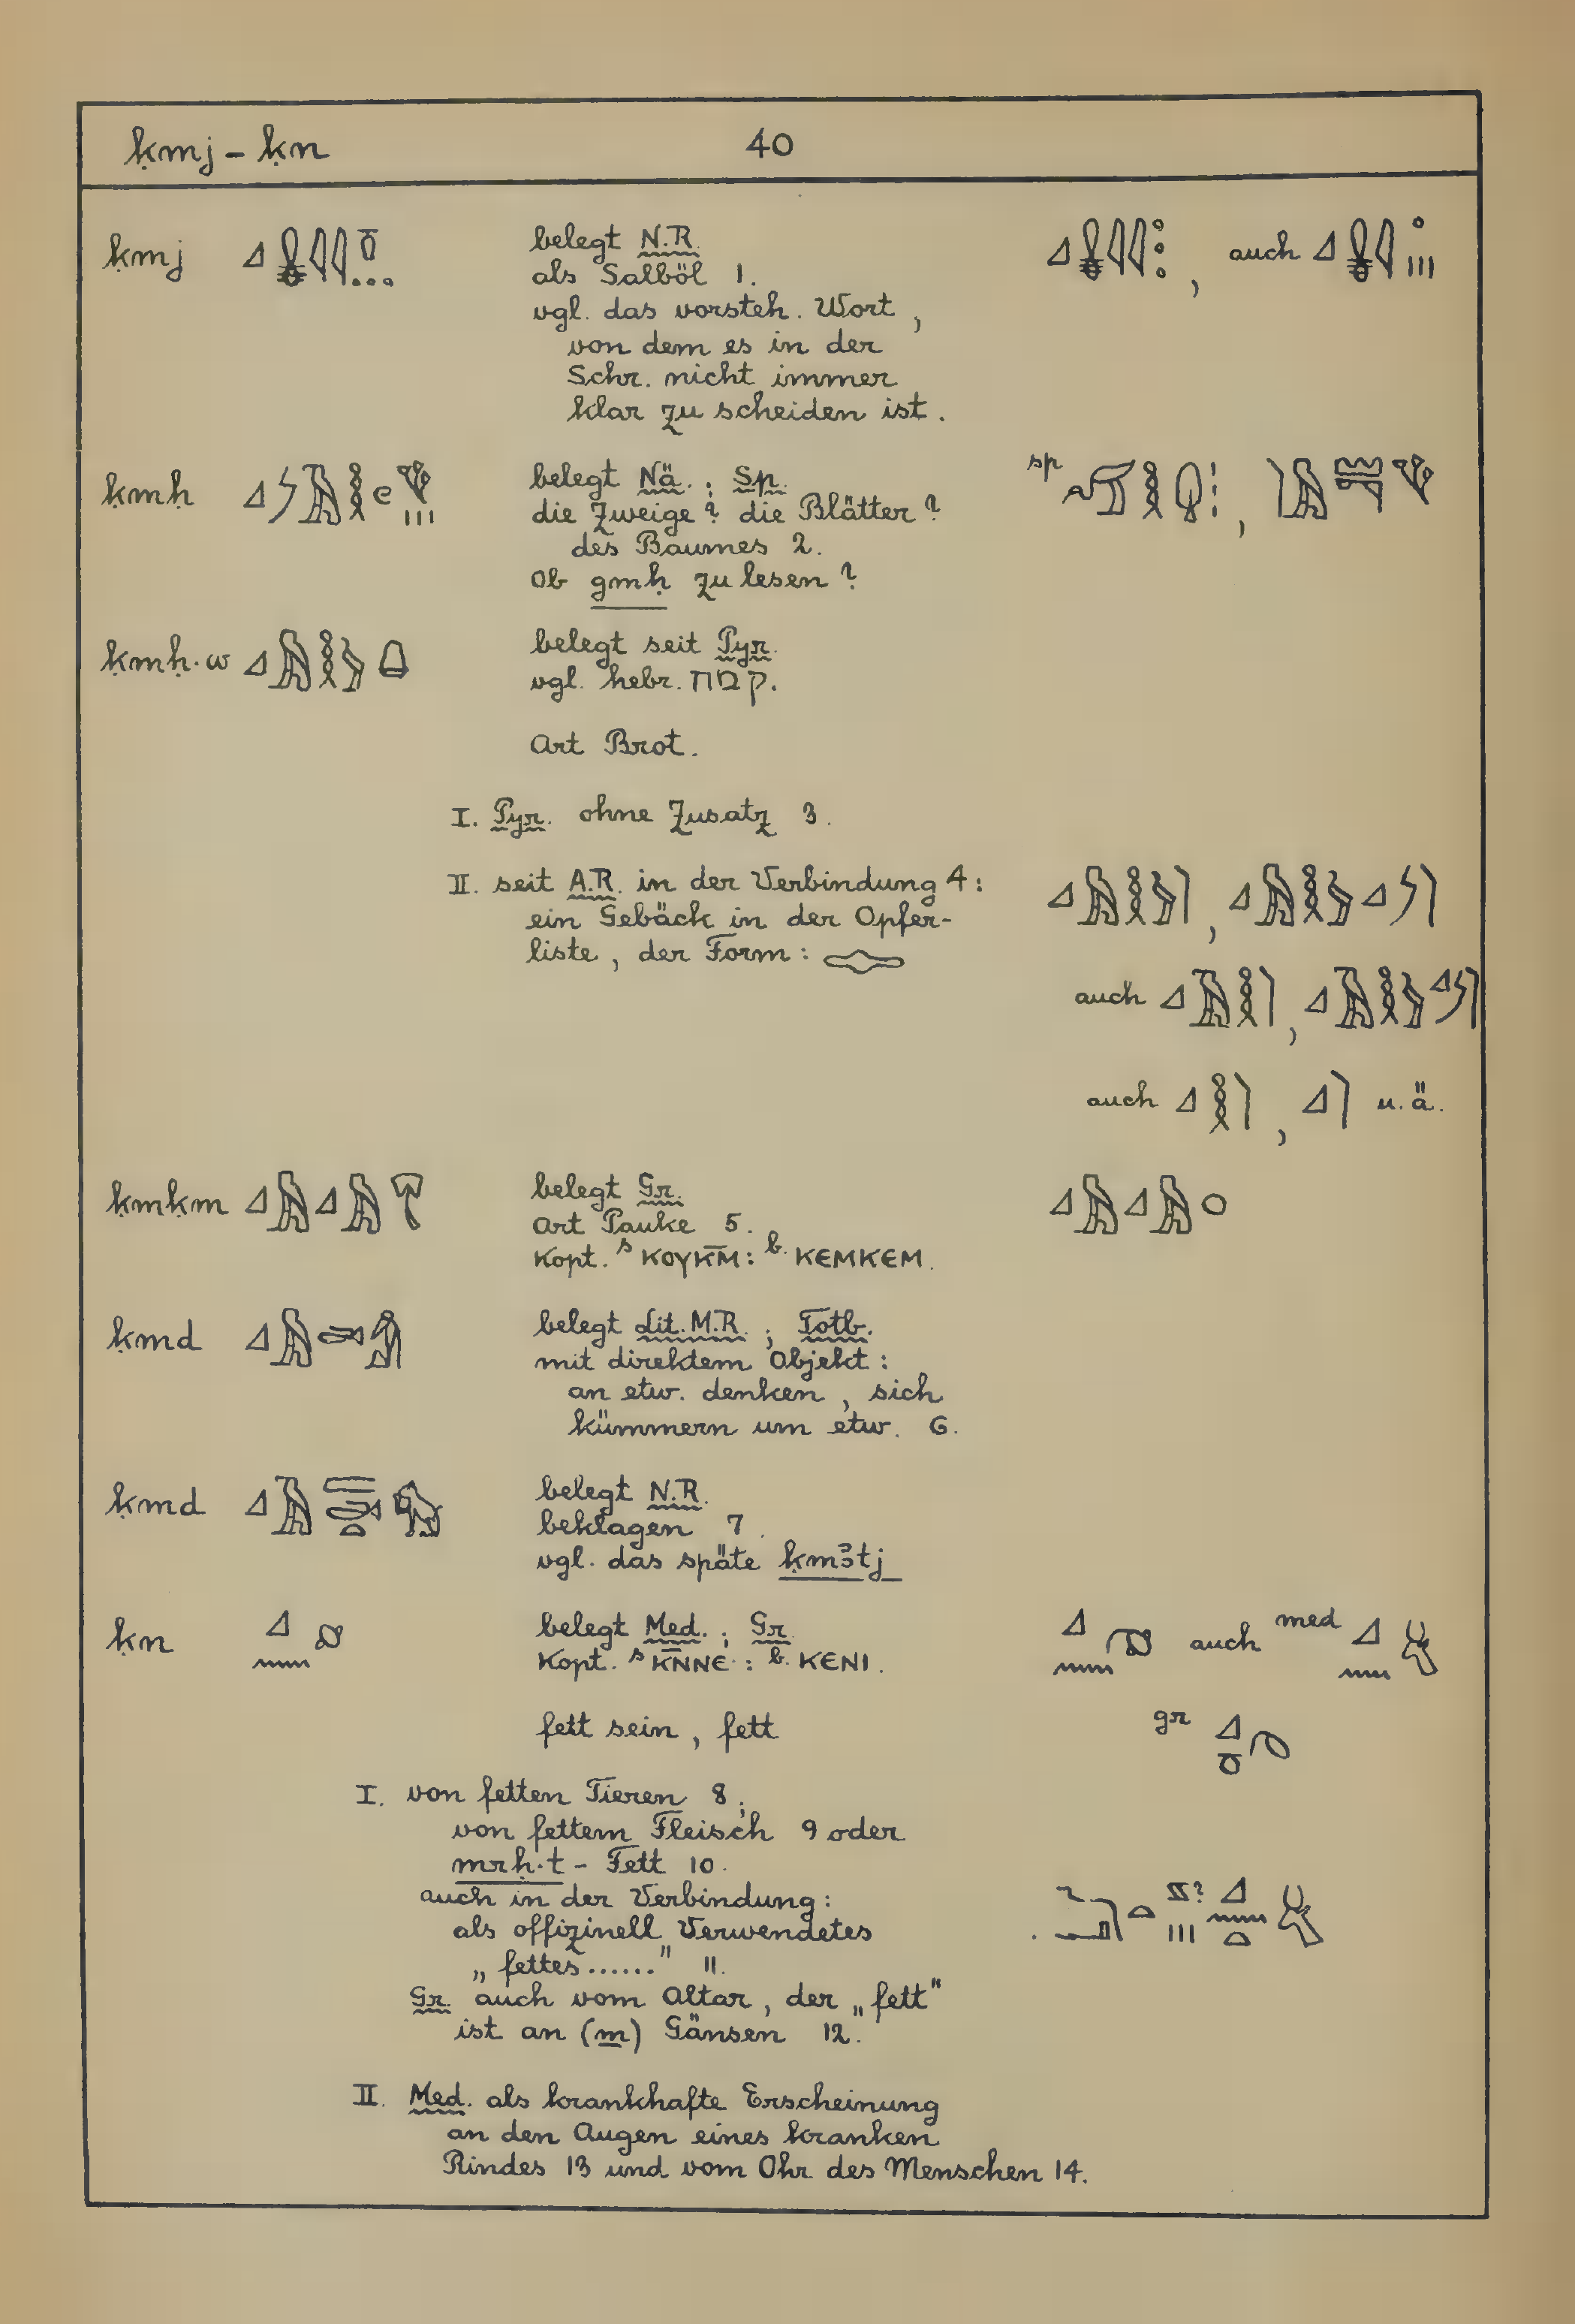 ḳmj – ḳn 40
ḳmj belegt N.R.
als Salböl 1.
vgl. das vorsteh. Wort,
von dem es in der
Schr. nicht immer
klar zu scheiden ist.
auch
ḳmḥ belegt Nä.; Sp.
die Zweige? die Blätter?
des Baumes 2.
Ob gmḥ zu lesen?
sp
ḳmḥ·w belegt seit Pyr.
vgl. hebr. קמח.
Art Brot.
I. Pyr. ohne Zusatz 3.
II. seit A.R. in der Verbindung 4:
ein Gebäck in der Opfer-
liste, der Form:
auch
auch u.ä.
ḳmḳm belegt Gr.
Art Pauke 5.
Kopt. s ⲕⲟⲩⲕⲙ̄: b. ⲕⲉⲙⲕⲉⲙ.
ḳmd belegt Lit. M.R.; Totb.
mit direktem Objekt:
an etw. denken, sich
kümmern um etw. 6.
ḳmd belegt N.R.
beklagen 7.
vgl. das späte ḳmꜣtj
ḳn belegt Med.; Gr.
Kopt. s ⲕⲛ̄ⲛⲉ: b. ⲕⲉⲛⲓ.
auch med
fett sein, fett
gr
I. von fetten Tieren 8;
von fettem Fleisch 9 oder
mrḥ·t – Fett 10.
auch in der Verbindung:
als offizinell Verwendetes
„fettes......" 11.
Gr. auch vom Altar, der „fett"
ist an (m) Gänsen 12.
II. Med. als krankhafte Erscheinung
an den Augen eines kranken
Rindes 13 und vom Ohr des Menschen 14.